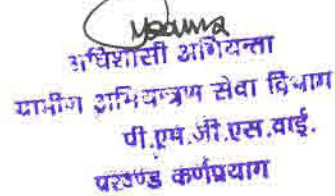 अधिशासी अभियन्ता
ग्रामीण अभियन्त्रण सेवा विभाग
पी.एम.जी.एस.वाई.
प्रखण्ड कर्णप्रयाग